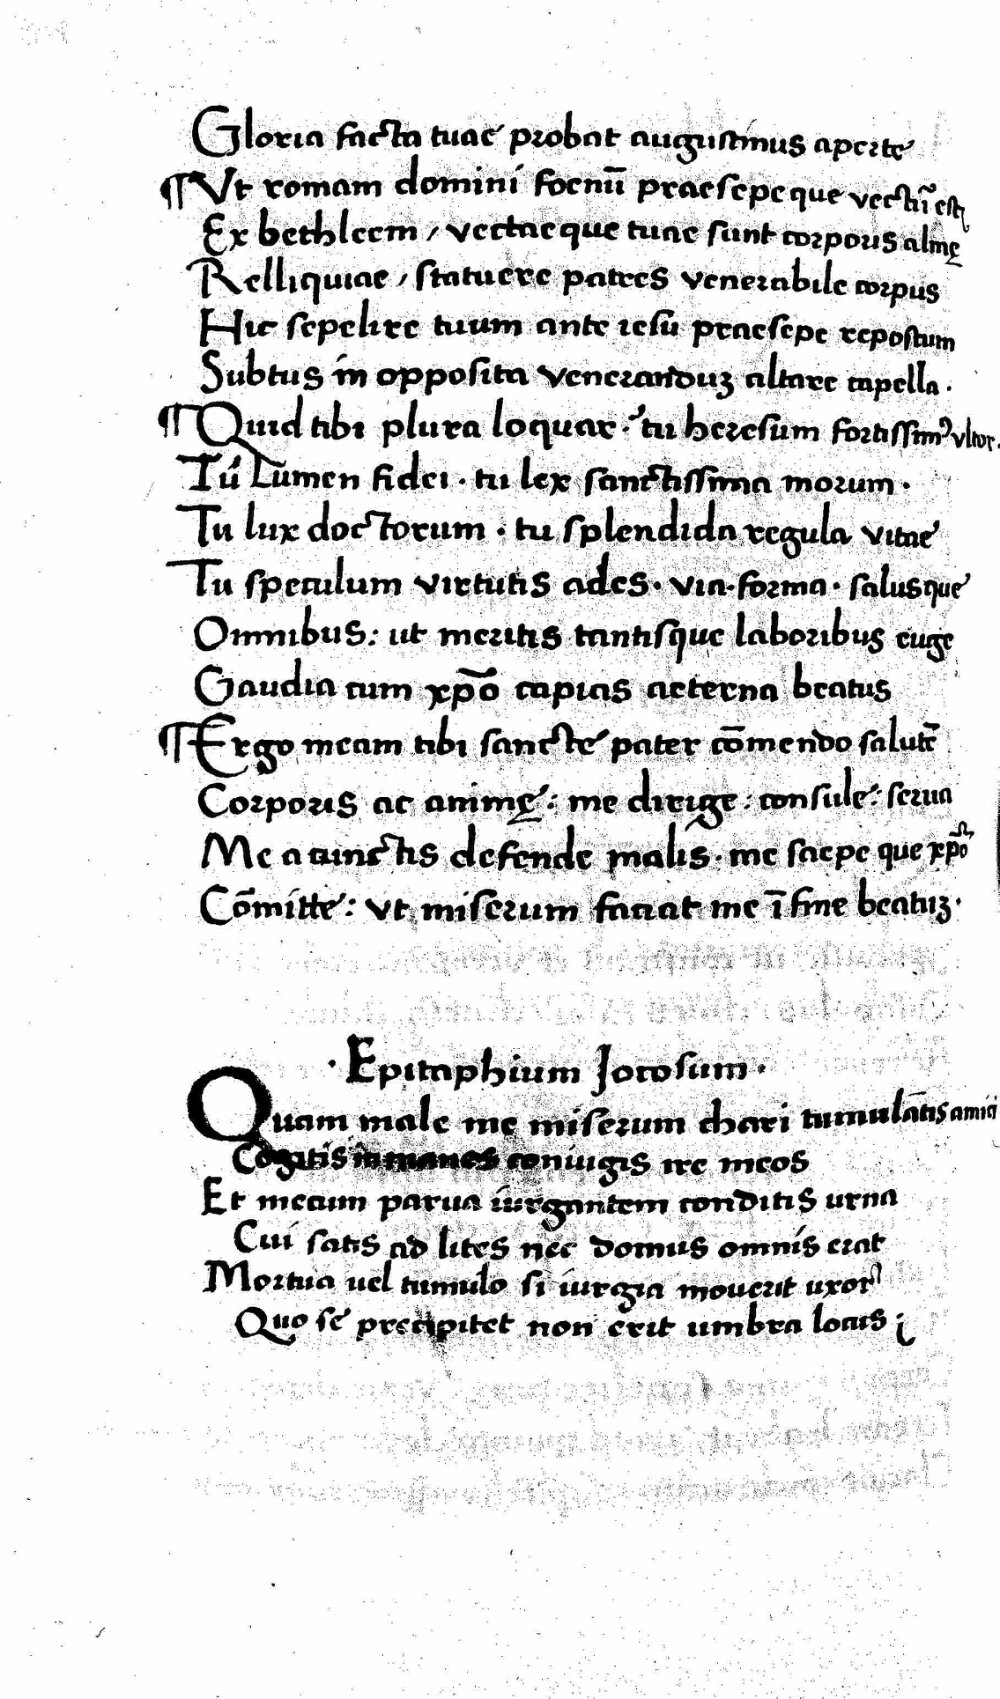 Gloria facta tuae probat augustinus aperte
¶ Vt romam domini foenū praesepe que vectū est
Ex bethleem / vectae que tuae sunt corporis almę
Relliquiae / statuere patres venerabile corpus
Hic sepelire tuum ante iesu praesepe repostum
Subtus in opposita veneranduȝ altare capella .
¶ Quid tibi plura loquar · tu heresum fortissimꝰ vltor .
Tu Lumen fidei · tu lex sanctissima morum ·
Tu lux doctorum · tu splendida regula vitae
Tu speculum virtutis ades · via · forma · salusque
Omnibus : ut meritis tantisque laboribus euge
Gaudia cum xp̄o capias aeterna beatus
¶ Ergo meam tibi sancte pater cōmendo salutē
Corporis ac animę : me dirige : consule : serua
Me a cunctis defende malis · me saepe que xp̄o
Cōmitte : vt miserum faciat me ī fine beatuȝ ·
· Epitaphium Jocosum ·
Quam male me miserum chari tumulātis amici
Cogitis in manes coniugis ire meos
Et mecum parua iurgantem conditis urna
Cui satis ad lites nec domus omnis erat
Mortua uel tumulo si iurgia mouerit uxor
Quo se precipitet non erit umbra locus ;